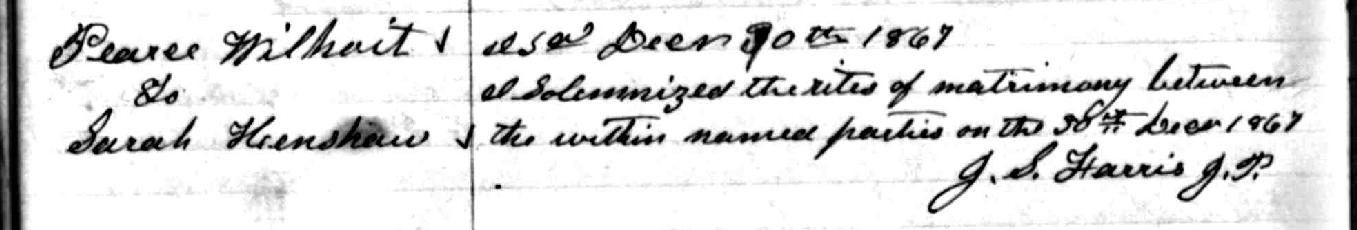 Pearce Wilhoit Isd Decr 30th 1867
to I Solemnized the rites of matrimony between
Sarah Henshaw the within named parties on the 30th Decr 1867
J. S. Harris J. P.